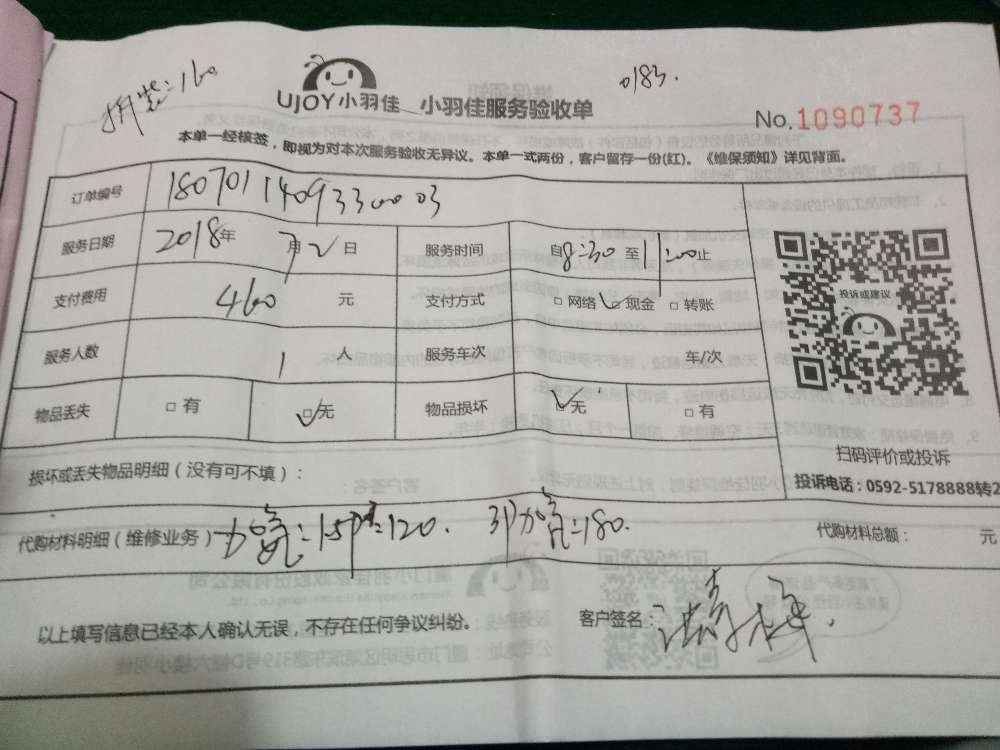 拆装=160
0183.
UJOY小羽佳 小羽佳服务验收单
No.1090737
本单一经核签，即视为对本次服务验收无异议。本单一式两份，客户留存一份(红)。《维保须知》详见背面。
订单编号 18070114093300003
服务日期 2018年 7月2日 服务时间 自8:30至11:00止
支付费用 460 元 支付方式 □网络 ☑现金 □转账
服务人数 1 人 服务车次 车/次
物品丢失 □有 ☑无 物品损坏 ☑无 □有
投诉或建议
扫码评价或投诉
投诉电话：0592-5178888转2
损坏或丢失物品明细（没有可不填）：
代购材料明细（维修业务） 加氨=1.5P=120. 3P加氨=180. 代购材料总额： 元
以上填写信息已经本人确认无误，不存在任何争议纠纷。 客户签名：